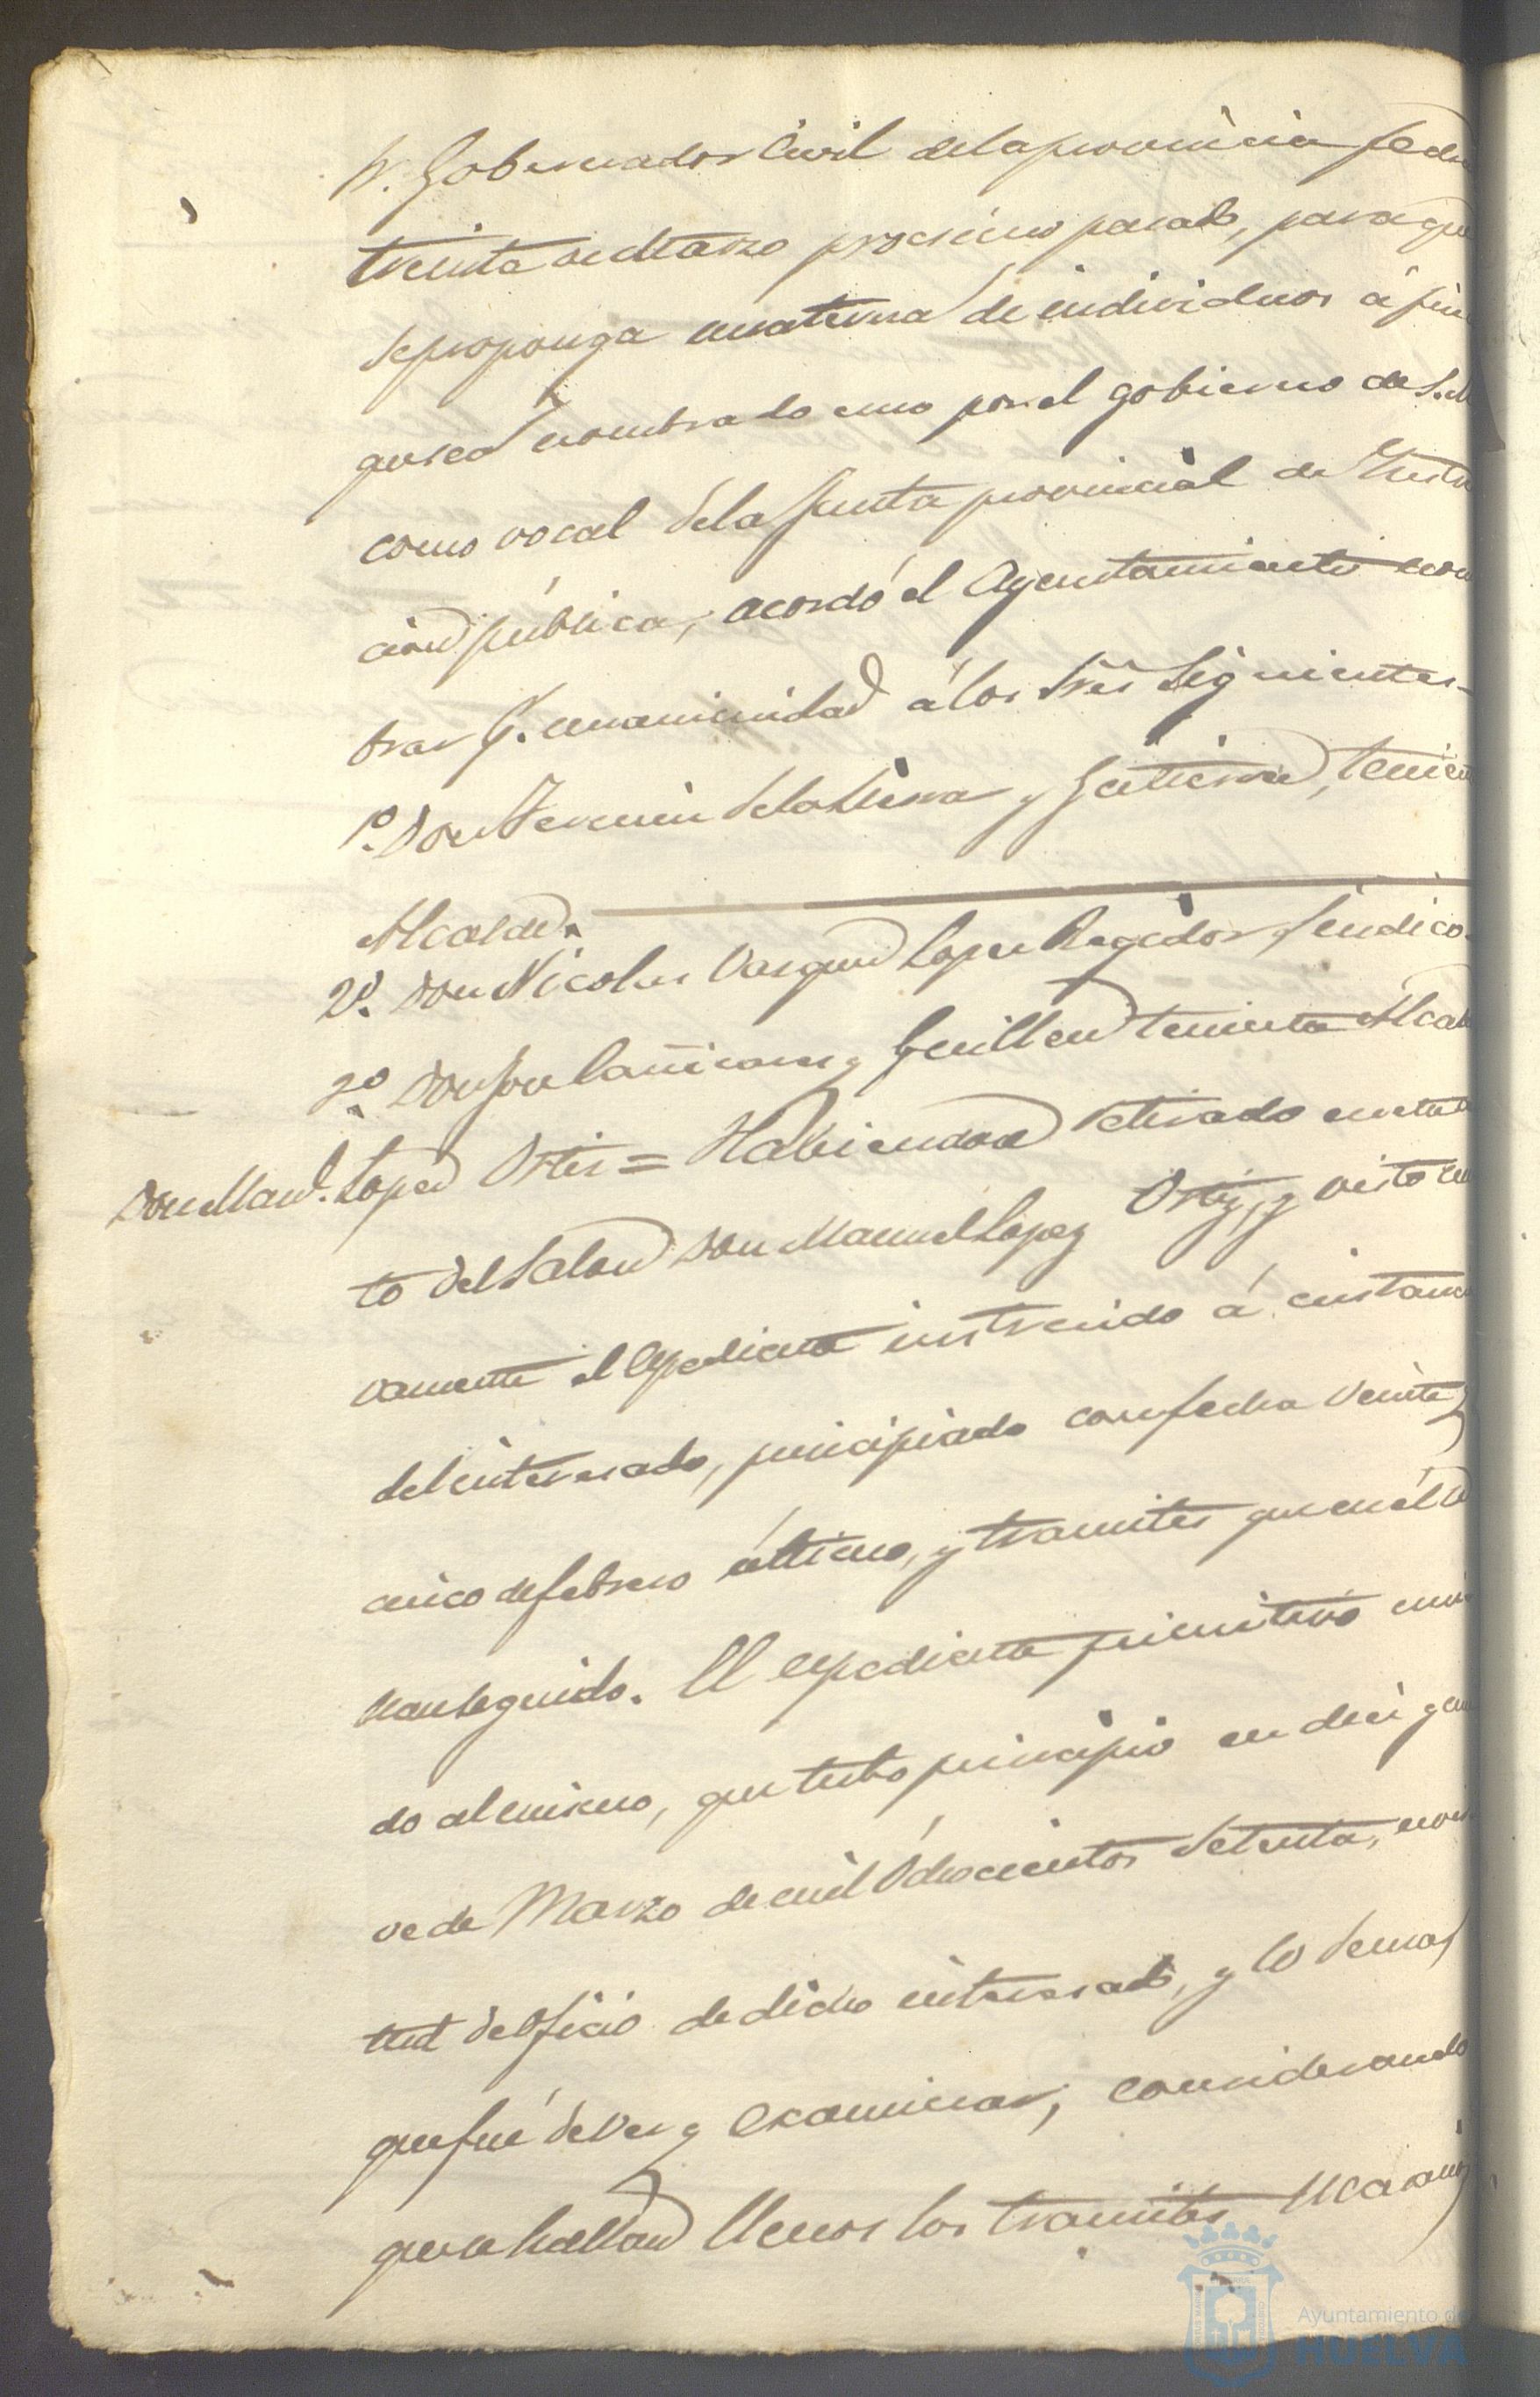 Sr. Gobernador Civil dela provincia fecha
treinta de Marzo procsimo pasado, para que
se proponga una terna de individuos á fin
que sea nombrado uno por el gobierno de S. M.
como vocal dela Junta provincial de Instruc
cion pública, acordó el Ayuntamiento nom
brar p.r unanimidad á los Sres siguientes-
1º. Don Fermin dela Sierra y Gutierrez, tenien
Alcalde.
2º. Don Nicolas Vazquez Lopez Regidor Sindico.
3º. Don José Cañizares y Guillen teniente Alcal
Don Man.l Lopez Ortiz = Habiendose retirado en este ac
to del Salon Don Manuel Lopez Ortiz, y visto nue
vamente el expediente instruido á instancia
del interesado, principiado con fecha veinte y
cinco de febrero último, y tramites que en él se
han seguido. El expediente primitivo uni
do al mismo, que tubo principio en diez y nue
ve de Marzo de mil Ochocientos setenta,
de oficio de dicho interesado, y lo demas
que fué de ver y examinar, considerando
que se hallan llenos los tramites
Ayuntamiento de
HUELVA